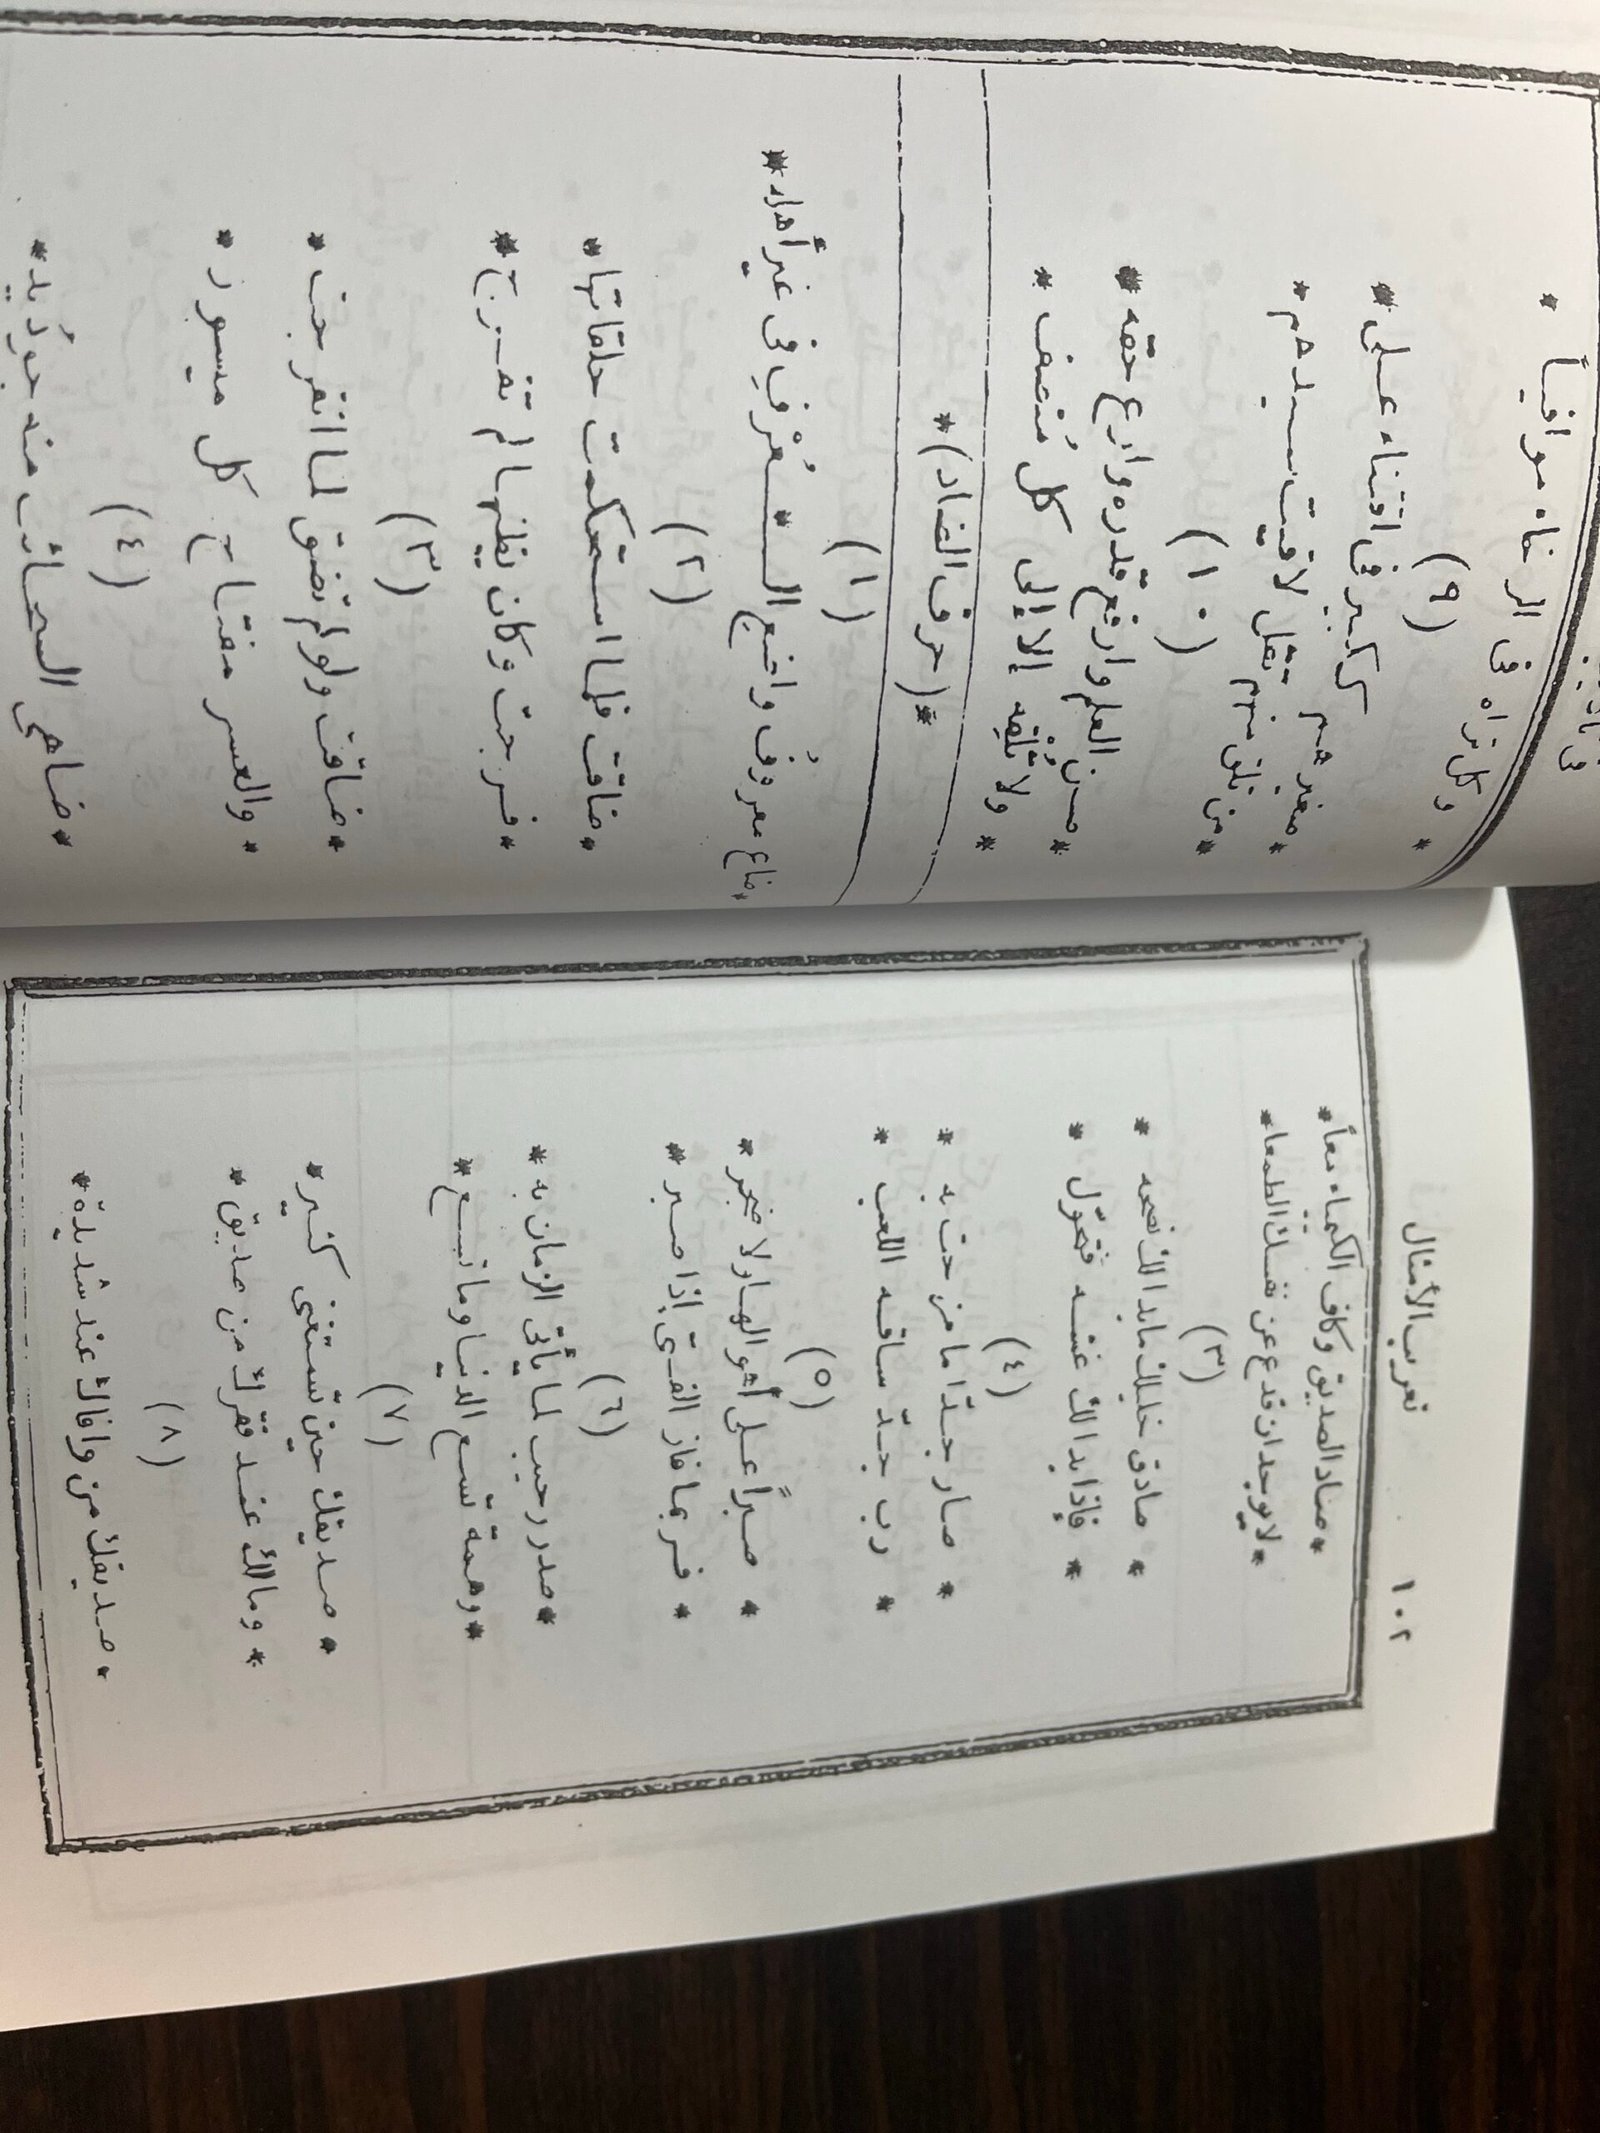 تعرب الأمثال
١٠٢
* صاد الصديق وكاف الكيمياء معاً *
* لا يوجدان فدع عن نفسك الطمعا *
(٣)
* صادق خليلك ما بدا لك نصحه *
* فإذا بدا لك غشه فتحوّل *
(٤)
* صار جدّا ما مزحت به *
* رب جدّ ساقه اللعب *
(٥)
* صبراً على أهوالها ولا ضجر *
* فربما فاز الفتى إذا صبر *
(٦)
* صدر رحيب لما يأتى الزمان به *
* وهمة تسع الدنيا وما تسع *
(٧)
* صديقك حين تستغنى كثير *
* ومالك عند فقرك من صديق *
(٨)
* صديقك من وافاك عند شديدة *
* وكل تراه فى الرخاء موافياً *
(٩)
* صغيرهم كبير فى اقتناء على *
* من تلق منهم تقل لاقيت سيدهم *
(١٠)
* صن العلم وارفع قدره وارع حقه *
* ولا تُلْقِه إلا إلى كل مُنصف *
* (حرف الضاد) *
(١)
* ضاع معروفُ واضع الـعُرْفِ فى غير أهله *
(٢)
* ضاقت فلما استحكمت حلقاتها *
* فرجت وكان يظنها لم تفرج *
(٣)
* ضاقت ولو لم تضق لما انفرجت *
* والعسر مفتاح كل ميسور *
(٤)
* ضاهى السحائب منه جودُ يد *